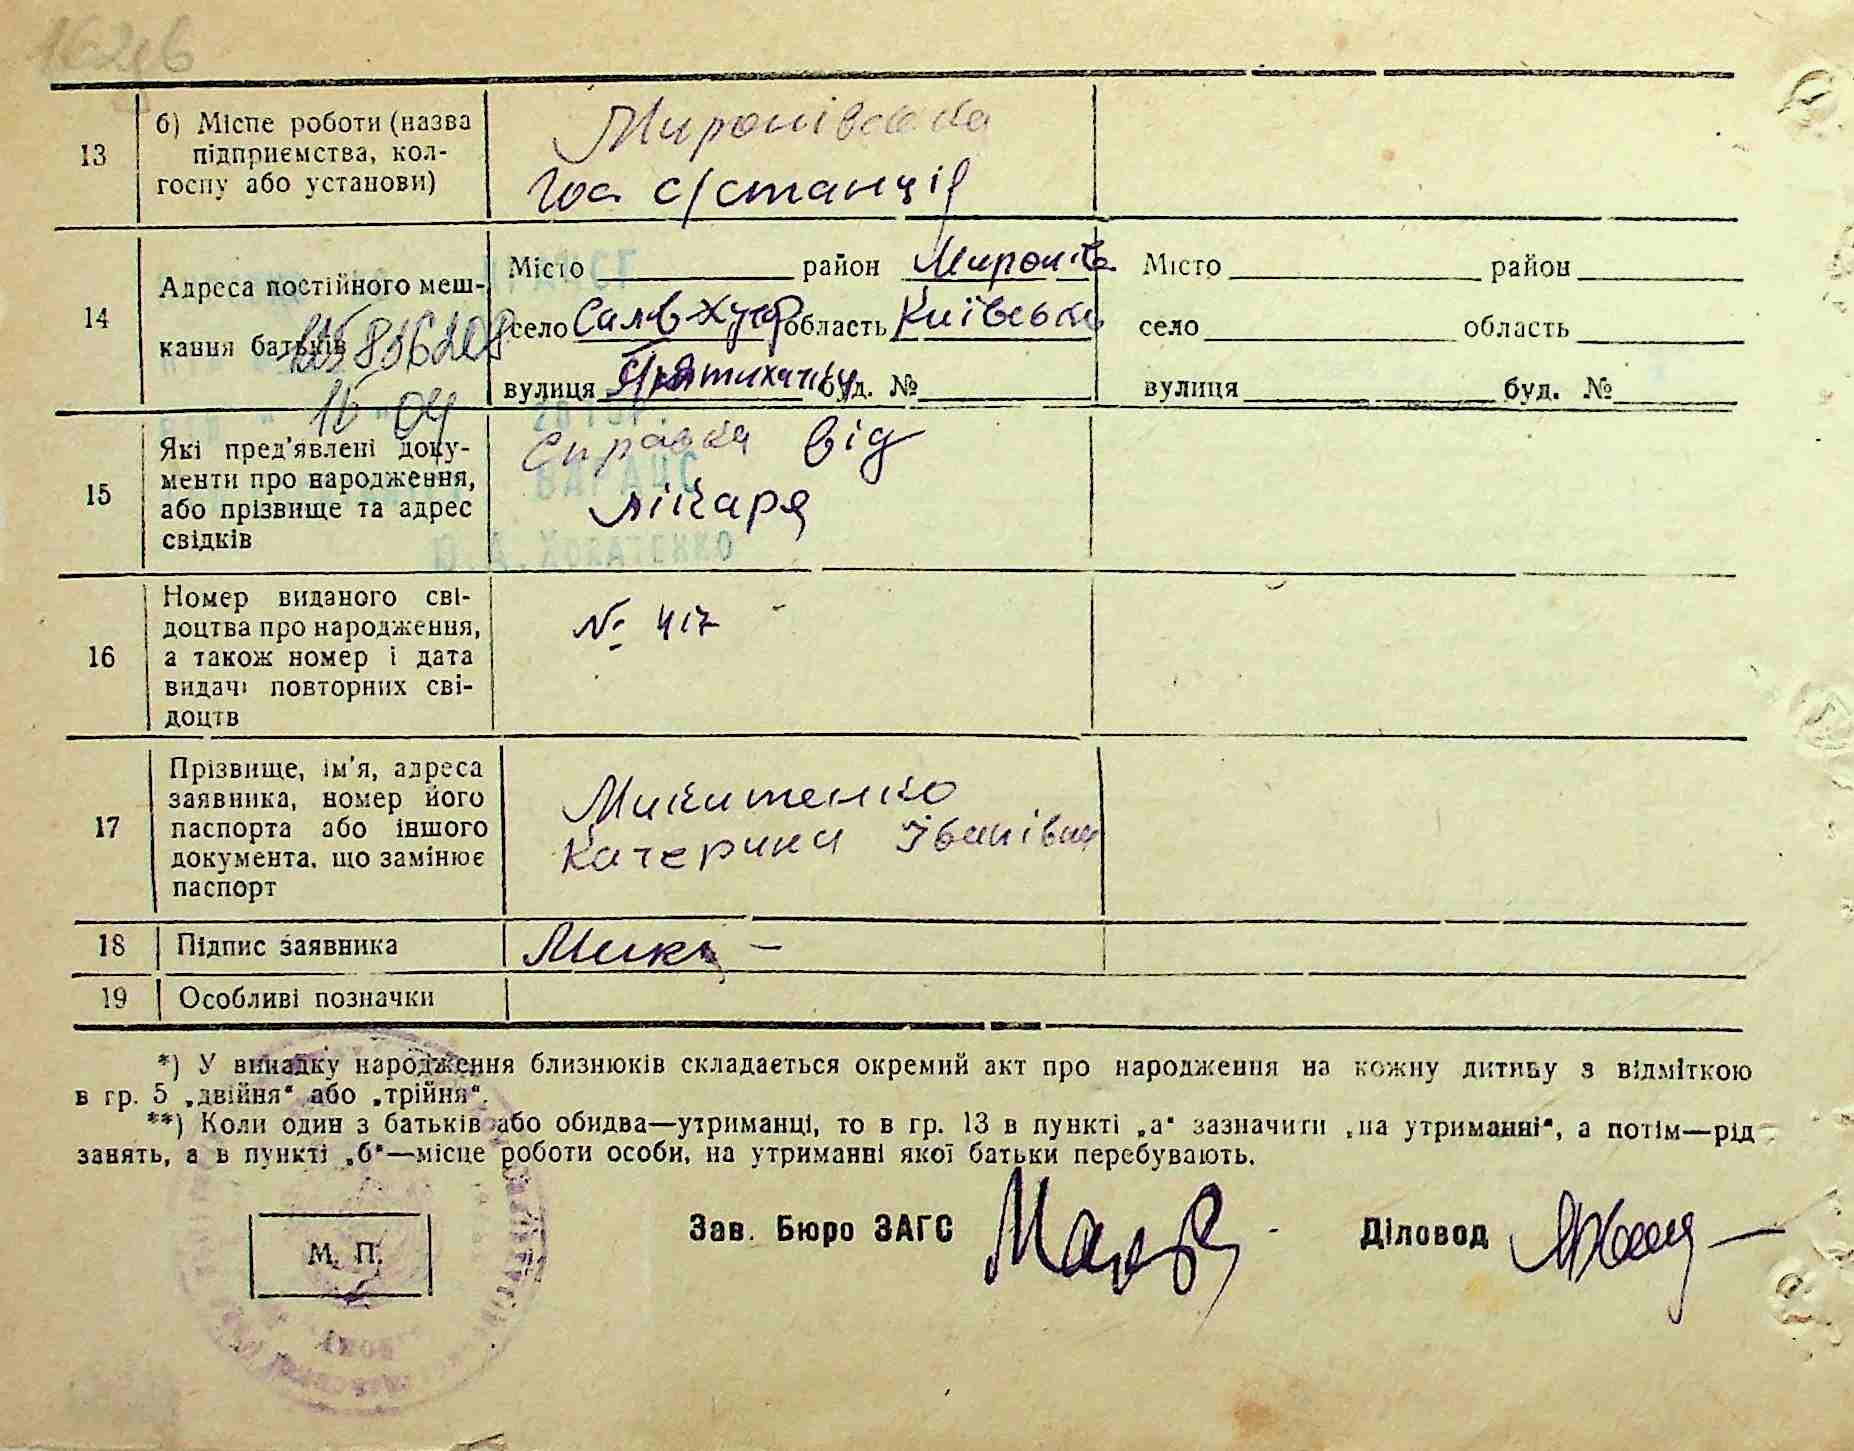 13
б) Місце роботи (назва
підприємства, кол-
госпу або установи)
Миронівська
с/станція
14
Адреса постійного меш-
кання батьків
Місто район Миронів
село область Київська
вулиця буд. №
Місто район
село область
вулиця буд. №
15
Які пред'явлені доку-
менти про народження,
або прізвище та адрес
свідків
Справка від
лікаря
16
Номер виданого сві-
доцтва про народження,
а також номер і дата
видачі повторних сві-
доцтв
№ 417
17
Прізвище, ім'я, адреса
заявника, номер його
паспорта або іншого
документа, що замінює
паспорт
Микитенко
Катерина Іванівна
18
Підпис заявника
19
Особливі позначки
*) У випадку народження близнюків складається окремий акт про народження на кожну дитину з відміткою
в гр. 5 „двійня“ або „трійня“.
**) Коли один з батьків або обидва—утриманці, то в гр. 13 в пункті „а“ зазначити „на утриманні“, а потім—рід
занять, а в пункті „б“—місце роботи особи, на утриманні якої батьки перебувають.
М. П.
Зав. Бюро ЗАГС
Діловод